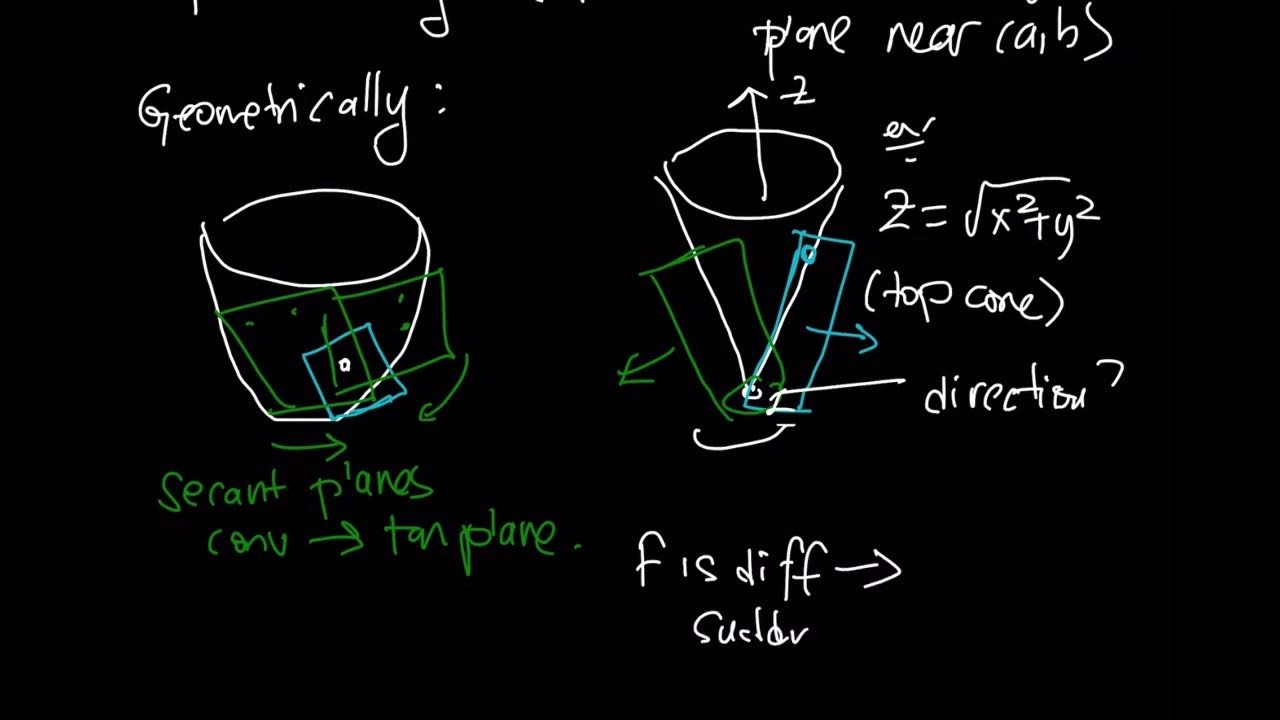 plane near (a,b)
Geometrically:
z
ex
z = √x²+y²
(top cone)
direction?
secant planes
conv → tan plane.
f is diff →
sudde